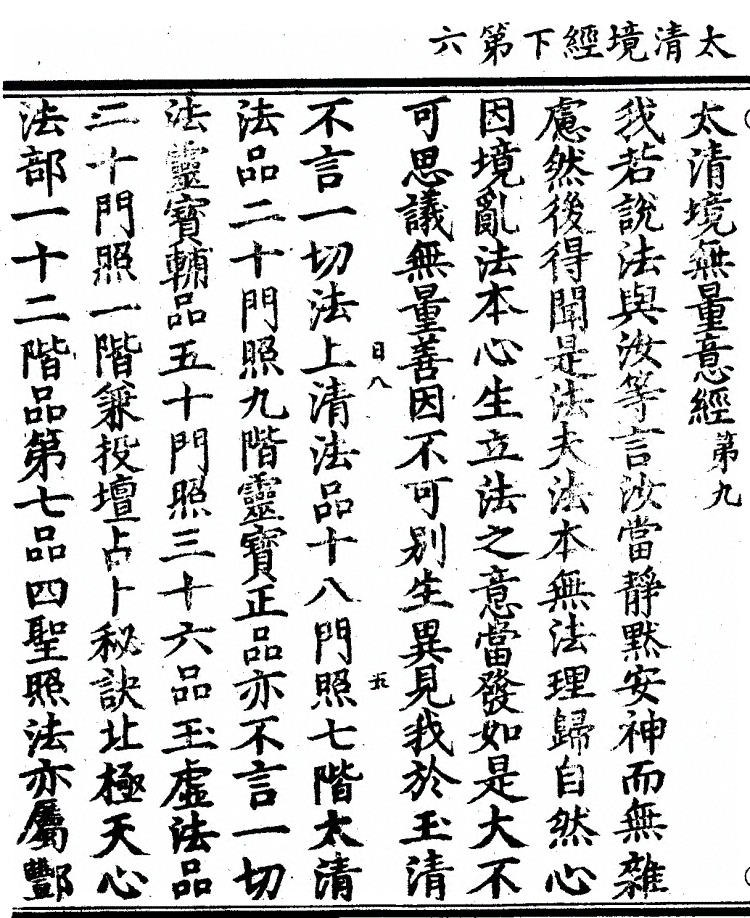 太清境經下第六
太清境無量意經第九
我若說法與汝等言汝當靜默安神而無雜
慮然後得聞是法夫法本無法理歸自然心
因境亂法本心生立法之意當發如是大不
可思議無量善因不可别生異見我於玉清
日八 五
不言一切法上清法品十八門照七階太清
法品二十門照九階靈寶正品亦不言一切
法靈寶輔品五十門照三十六品玉虛法品
二十門照一階兼投壇占卜秘訣北極天心
法部一十二階品第七品四聖照法亦屬酆